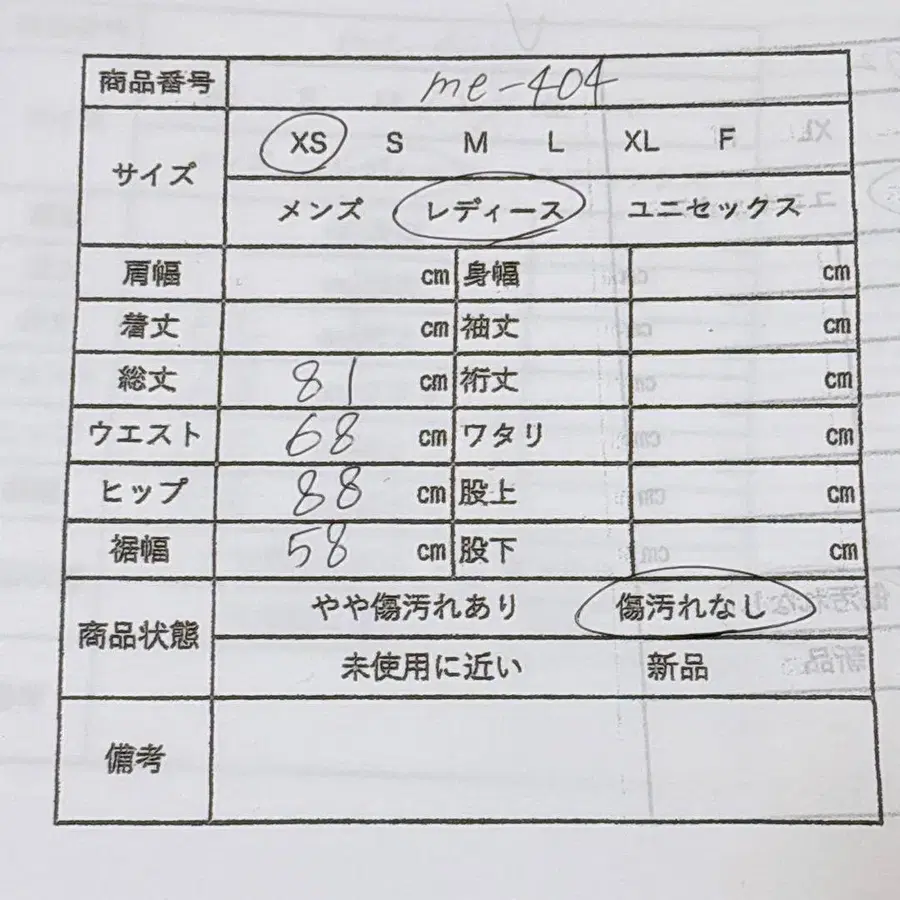 商品番号 me-404
サイズ XS S M L XL F
メンズ レディース ユニセックス
肩幅 cm 身幅 cm
着丈 cm 袖丈 cm
総丈 81 cm 裄丈 cm
ウエスト 68 cm ワタリ cm
ヒップ 88 cm 股上 cm
裾幅 58 cm 股下 cm
商品状態 やや傷汚れあり 傷汚れなし
未使用に近い 新品
備考